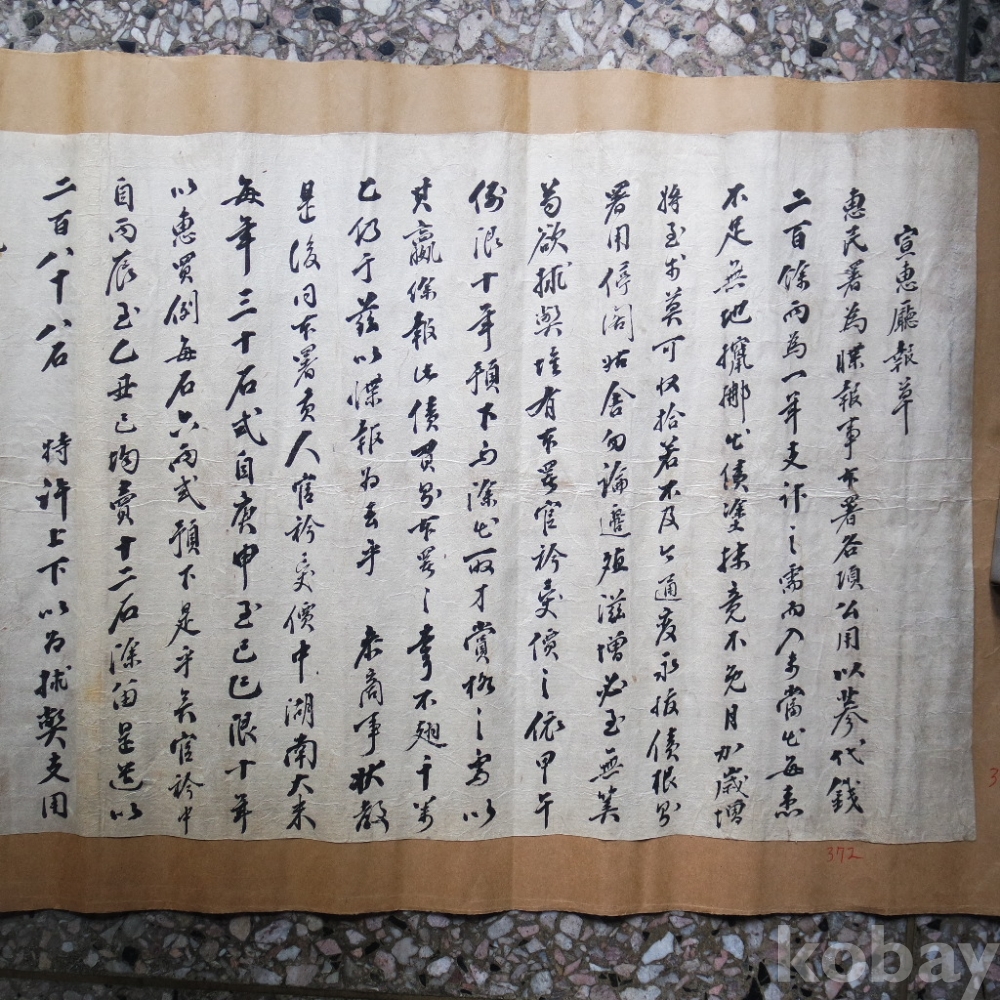 宣惠廳報草
惠民署為牒報事本署各項公用以蔘代錢
二百餘兩為一年支計之需而入不當出每患
不足無地推挪出債塗抹竟不免月加歲增
將至於莫可收拾若不及今通變永拔債根則
署用停閣姑舍勿論遷延滋增必至無策
苟欲捄弊惟有本署官衿受價之依甲午
例限十年預下而除出取才賞格之需以
其贏餘報此債買則本署之幸不翅千萬
乞仍于茲以牒報為去乎 恭商事狀教
是後同本署貢人官衿受價中湖南大米
每年三十石式自庚申至己巳限十年
以惠買例每石六兩式預下是乎矣官衿中
自丙辰至乙丑已均賣十二石除留是遣以
二百八十八石 特許上下以為捄弊支用
372
kobay